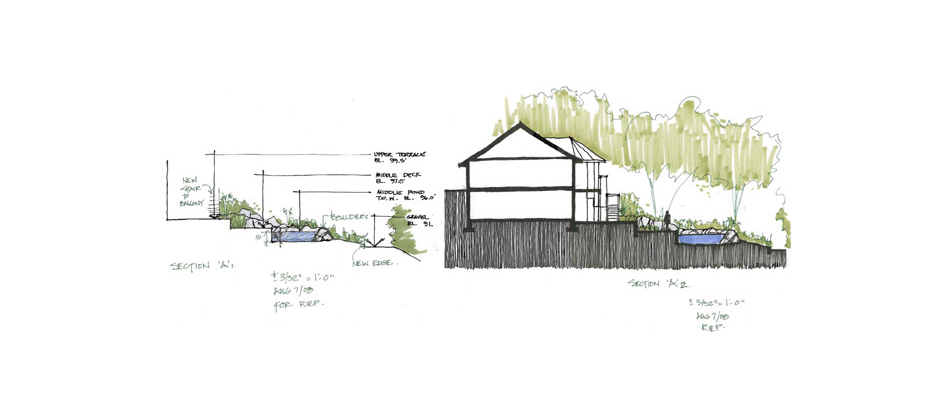 UPPER TERRACE
EL. 99.5'
MIDDLE DECK
EL. 97.0'
MIDDLE POND
T.O.W. EL. 96.0'
GRAVEL
EL. 91.
NEW
STAIR
TO
BALCONY
BOULDERS
NEW EDGE.
SECTION 'A'1.
± 3/32" = 1'-0"
AUG 7/08
FOR
SECTION 'A' 2.
± 3/32" = 1'-0"
AUG 7/08